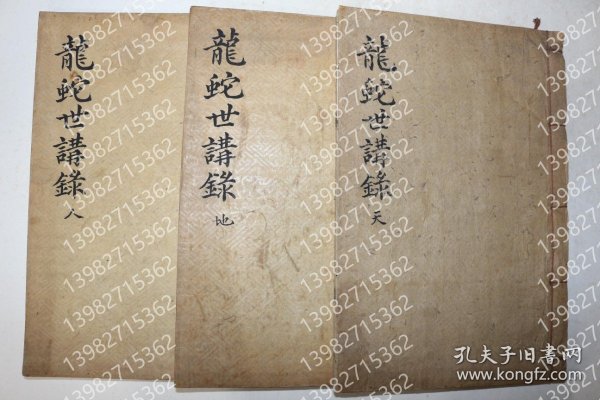 龍蛇世講錄 天
龍蛇世講錄 地
龍蛇世講錄 人
13982715362
孔夫子旧書网
www.kongfz.com